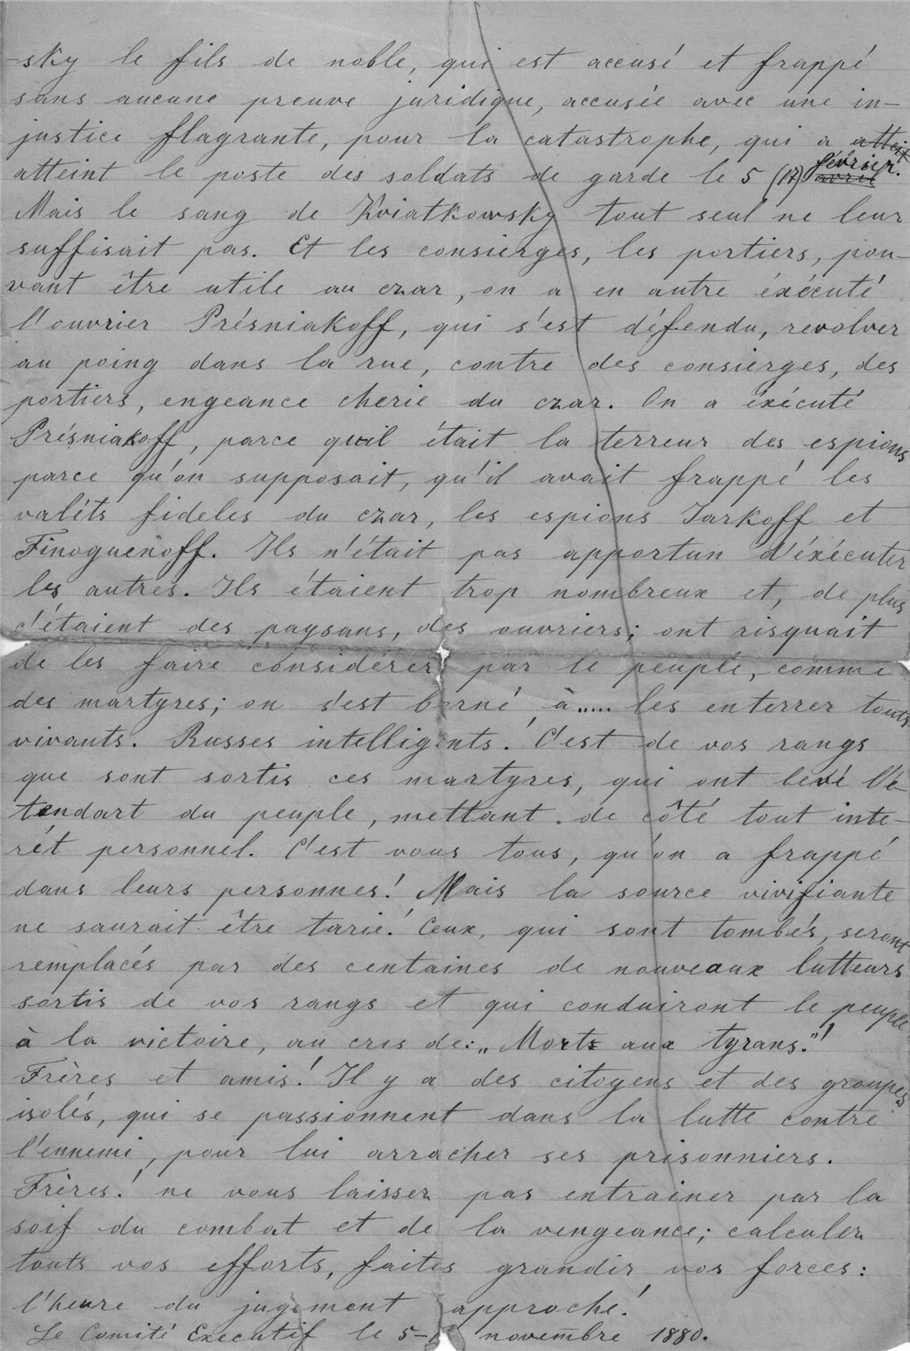 -sky le fils de noble, qui est accusé et frappé
sans aucune preuve juridique, accusée avec une in-
justice flagrante, pour la catastrophe, qui a atteit
atteint le poste des soldats de garde le 5 (17) avril février.
Mais le sang de Kviatkowsky tout seul ne leur
suffisait pas. Et les consierges, les portiers, pou-
vant être utile au czar, on a en autre éxécuté
l'ouvrier Présniakoff, qui s'est défendu, revolver
au poing dans la rue, contre des consierges, des
portiers, engeance cherie du czar. On a éxécuté
Présniakoff, parce qu'il était la terreur des espions
parce qu'on supposait, qu'il avait frappé les
valéts fideles du czar, les espions Jarkoff et
Finoguenoff. Ils n'était pas apportun d'éxécuter
les autres. Ils étaient trop nombreux et, de plus
c'étaient des paysans, des ouvriers; ont risquait
de les faire considérer par le peuple, comme
des martyres; on s'est borné à..... les enterrer touts
vivants. Russes intelligents! C'est de vos rangs
que sont sortis ces martyres, qui ont levé l'é-
tendart du peuple, mettant de côté tout inte-
rét personnel. C'est vous tous, qu'on a frappé
dans leurs personnes! Mais la source vivifiante
ne saurait être tarie! Ceux, qui sont tombés, seront
remplacés par des centaines de nouveaux lutteurs
sortis de vos rangs et qui conduiront le peuple
à la victoire, au cris de: „Morts aux tyrans."!
Frères et amis! Il y a des citoyens et des groupes
isolés, qui se passionnent dans la lutte contre
l'ennemi, pour lui arracher ses prisonniers.
Frères! ne vous laisser pas entrainer par la
soif du combat et de la vengeance; calculer
touts vos efforts, faites grandir vos forces:
l'heure du jugement approche!
Le Comité Executif le 5- novembre 1880.